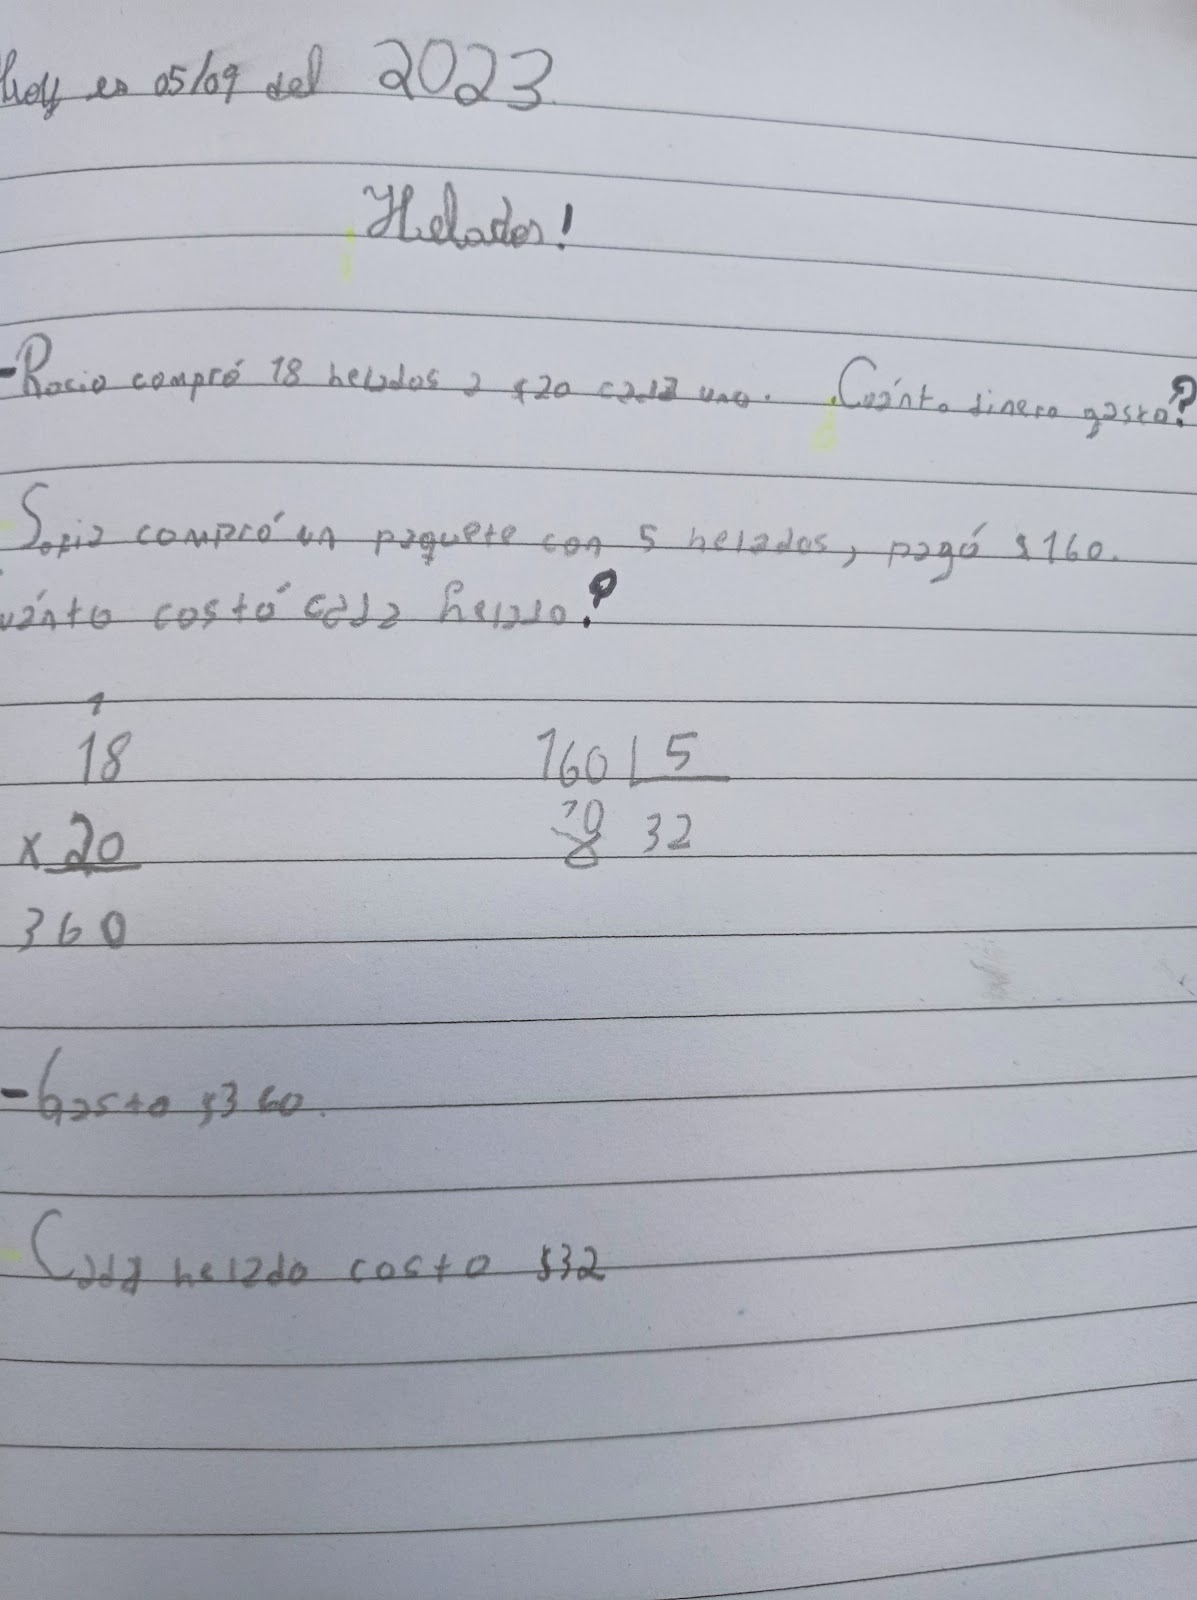 hoy es 05/09 del 2023.
¡Helados!
-Rocio compró 18 helados a $20 cada uno. ¿Cuánto dinero gasto?
-Sofia compró un paquete con 5 helados, pagó $160.
uánto costó cada helado?
1
18 160 5
x 20 10 32
360 0
-Gasto $360.
-Cada helado costo $32